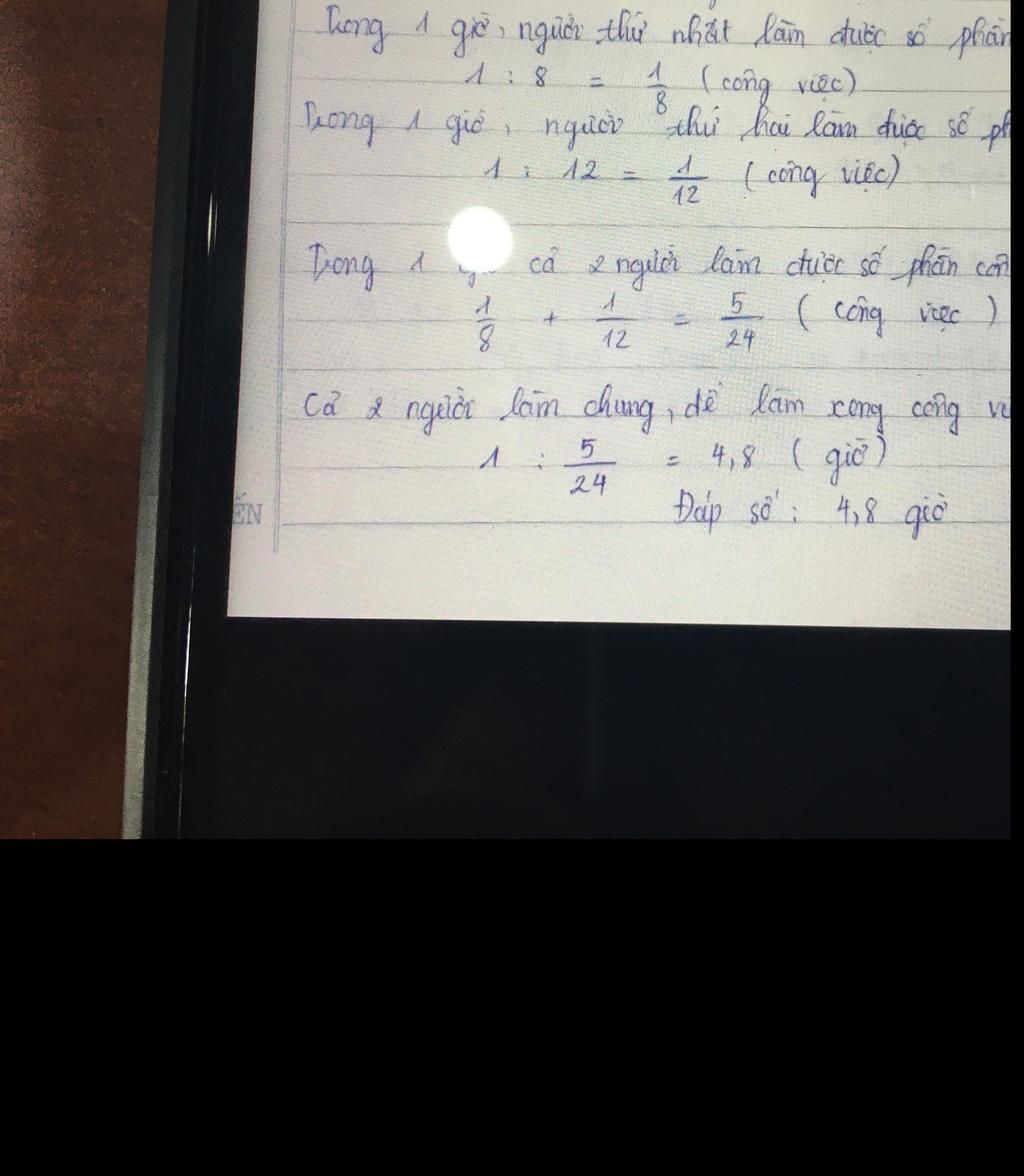 Trong 1 giờ, người thứ nhất làm được số phần
1 : 8 = 1/8 (công việc)
Trong 1 giờ, người thứ hai làm được số
1 : 12 = 1/12 (công việc)
Trong 1 cả 2 người làm được số phần
1/8 + 1/12 = 5/24 (công việc)
Cả 2 người làm chung, để làm xong công
1 : 5/24 = 4,8 (giờ)
Đáp số : 4,8 giờ
ẾN